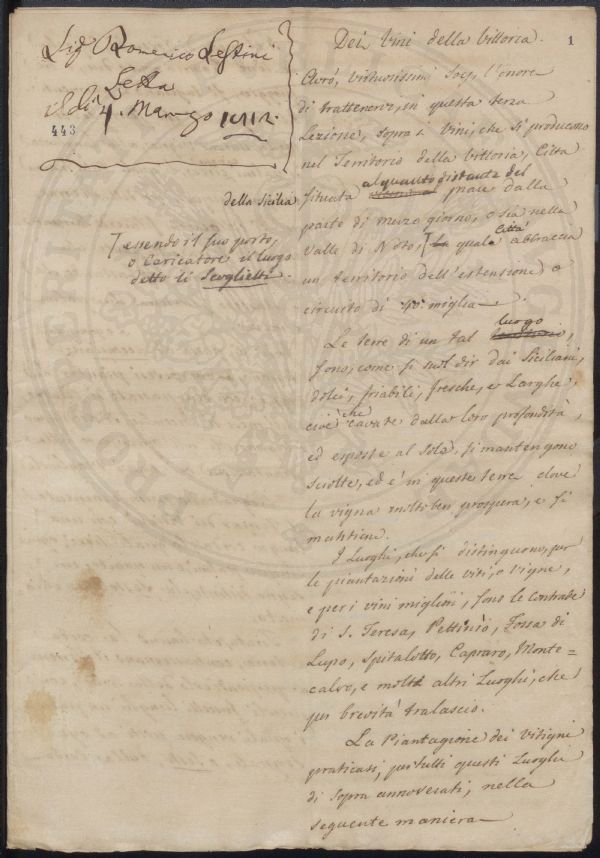 Sig.r Domenico Sestini
Letta
il dì 4. Marzo 1812.
443
1
Dei Vini della Vittoria.
Avrò, virtuosissimi Socj, l'onore
di trattenervi, in questa terza
Lezione, sopra i Vini, che si producono
nel Territorio della Vittoria, Città
situata alquanto distante del mare dalla
parte di mezzo giorno, o sia nella
Valle di Noto, La quale Città abbraccia
un territorio dell'estensione, o
circuito di 40. miglia.
della Sicilia
essendo il suo porto,
o caricatore il luogo
detto li Scoglietti.
Le terre di un tal luogo,
sono, come si suol dir dai Siciliani,
dolci, friabili, fresche, e Larghe,
cioè che cavate dalla loro profondità,
ed esposte al Sole, si mantengono
sciolte, ed è in queste terre dove
la vigna molto ben prospera, e si
mantiene.
I Luoghi, che si distinguono, per
le piantazioni delle viti, o Vigne,
e per i vini migliori, sono le Contrade
di S. Teresa, Pettinèo, Fossa di
Lupo, Spitalotto, Capraro, Monte=
calvo, e molti altri Luoghi, che
per brevità tralascio.
La Piantagione dei Vitigni
praticasi, per tutti questi Luoghi
di Sopra annoverati, nella
seguente maniera